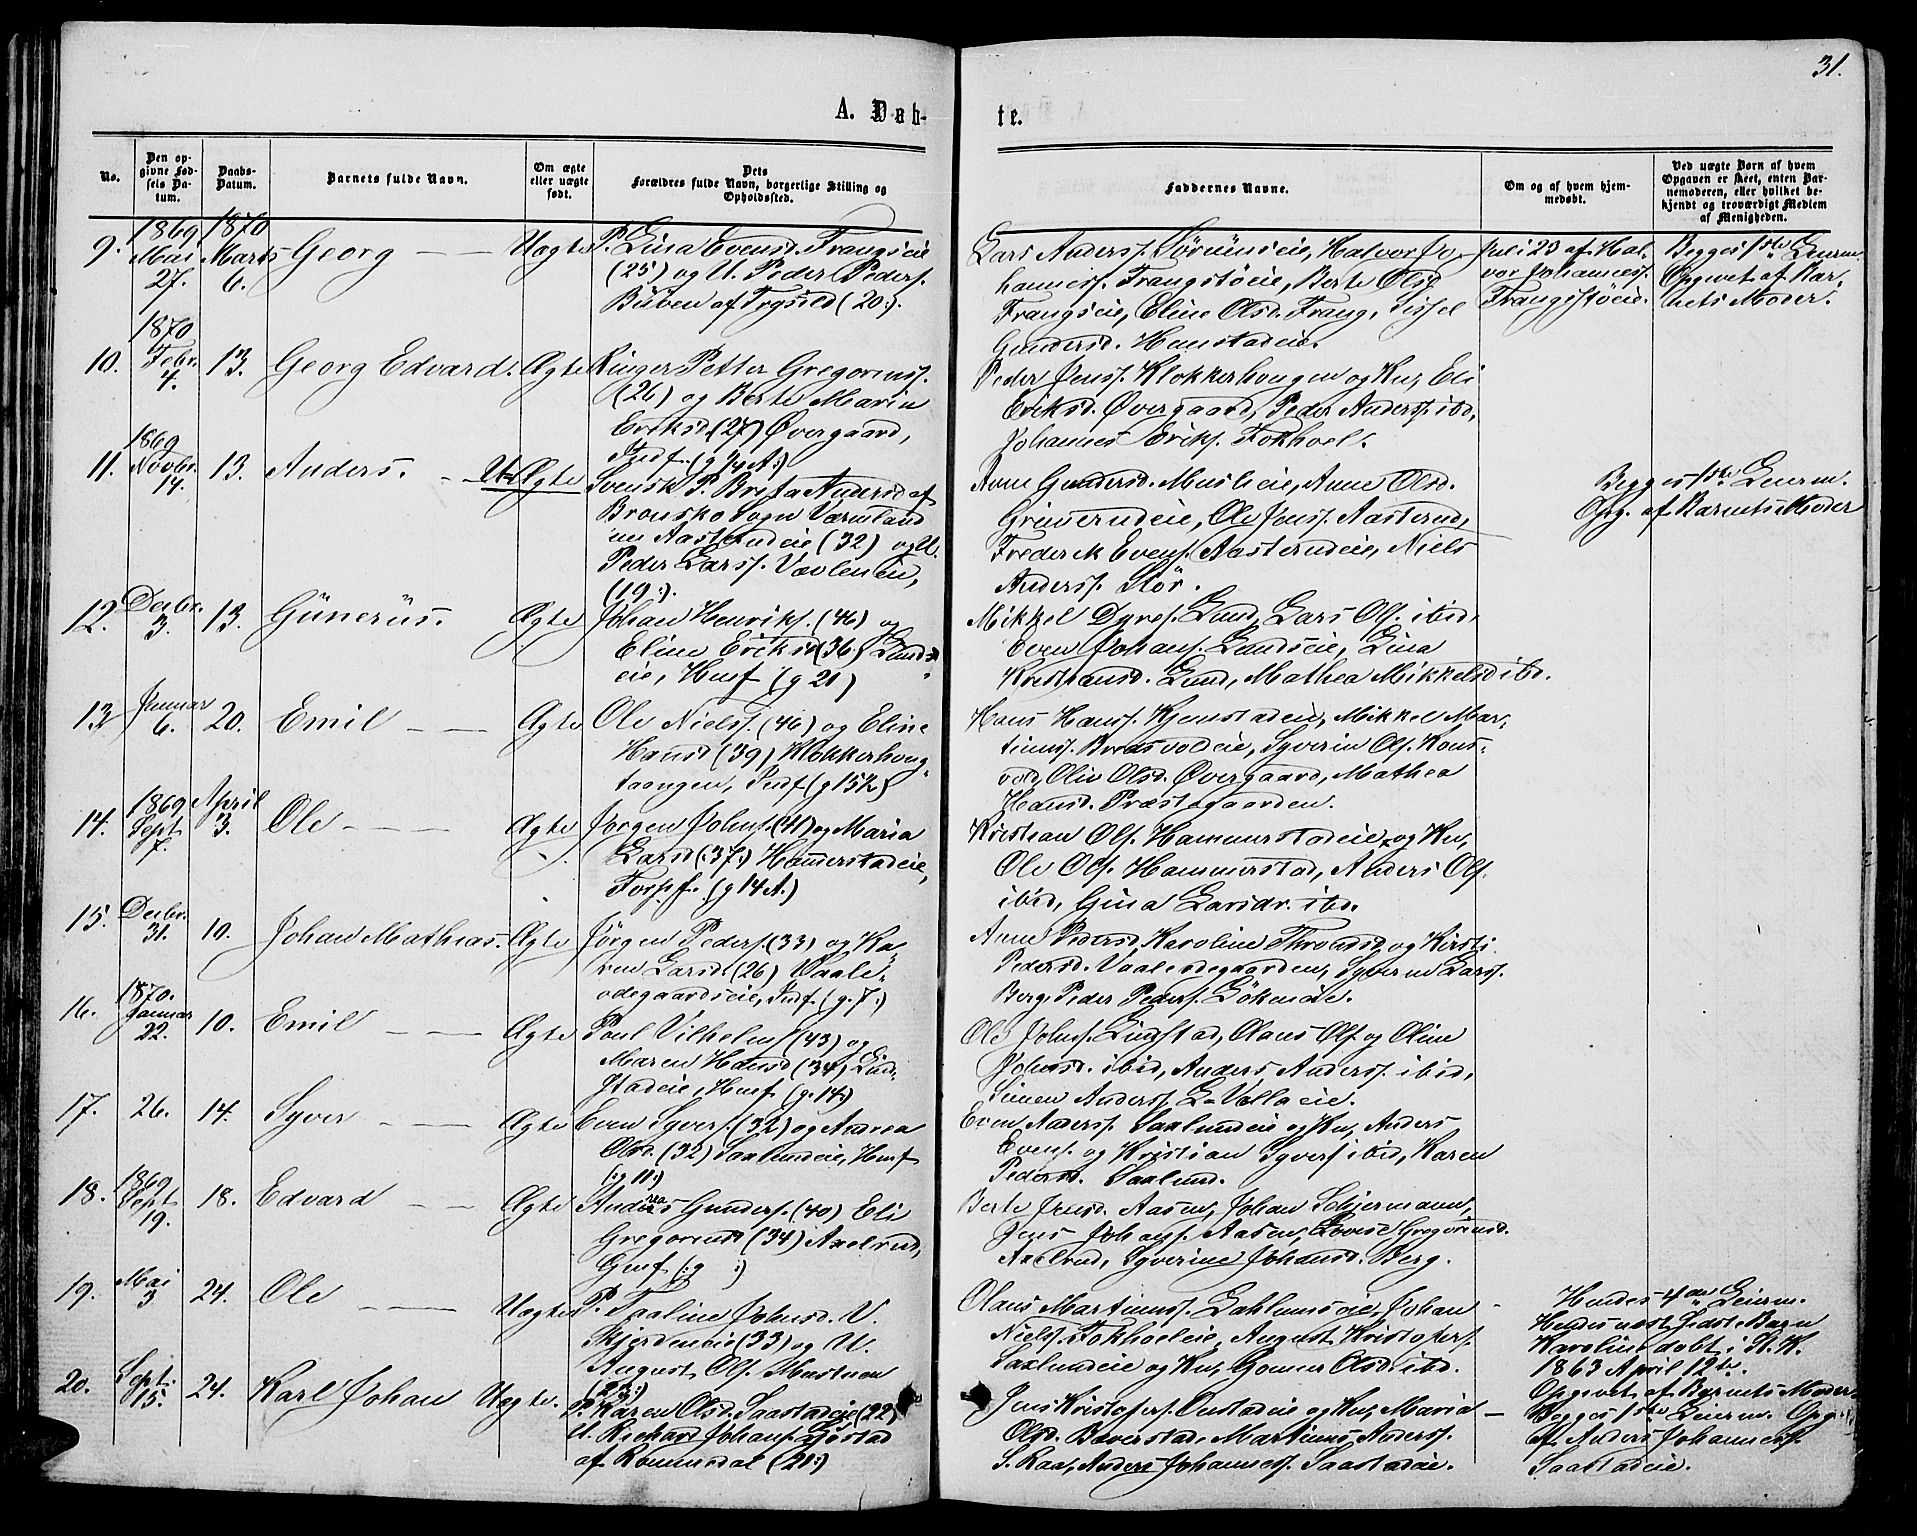 31.
A. Døb-
te.
No.
Den op-
givne Fød-
sels Da-
tum.
Daabs-
Datum.
Barnets fulde Navn.
Om ægte
eller uægte
født.
Dets
Forældres fulde Navn, borgerlige Stilling og
Opholdssted.
Faddernes Navne.
Om og af hvem hjem-
medøbt.
Ved uægte Børn af hvem
Opgaven er skeet, enten Bar-
nemoderen, eller hvilket be-
kjendt og troværdigt Medlem
af Menigheden.
9.
1869
Mai
27.
1870
Marts
6.
Georg
Uægte
P. Lina Evensd. Frangseie
(25) og U. Peder Peders.
Buben af Trysild (20:).
Lars Anderss. Halvor Jo-
hanness. Frangstøeie, Berte Olsd
Frangseie, Eline Olsd. Frang, Sissel
Gundersd. Homstadeie.
Juli 23 af Hal-
vor Johanness.
Frangstøeie.
Begges 1ste Leierm.
Opgivet af Bar-
nets Moder.
10.
1870
Febr.
4.
13.
Georg Edvard.
Ægte
Ringer Petter Gregoriuss.
(26) og Berte Marin
Eriksd. (27) Øvergaard,
Indf. (g 14 A:)
Peder Jenss. Klokkerhougen og Ku, Eli
Eriksd. Øvergaard, Peder Anderss. ibd,
Johannes Eriks. Fokhoel.
11.
1869
Novbr.
14.
13.
Anders.
U Ægte
Svensk P. Brita Andersd af
Bronsko Sogn Værmland
nu Aasterudeie (32) og U.
Peder Larss. Vævleneie,
(19:).
Anne Gundersd. Muslieie, Anne Olsd.
Grinerudeie, Ole Jenss. Aasterud,
Frederik Evens. Aasterudeie, Niels
Anderss. Stør.
Begges 1ste Leierm.
Opg. af Barnets Moder
12.
Decbr.
3.
13.
Günerüs.
Ægte
Johan Henriks. (46) og
Eline Eriksd (36) Lunds-
eie, Husf (g 21)
Mikkel Dyres. Lund, Lars Ols. ibid,
Even Johans. Lundseie, Lina
Kristiansd. Lund, Mathea Mikkelsd ibd.
13
Januar
6.
20.
Emil
Ægte
Ole Nielss. (46) og Eline
Hansd (39) Klokkerhoug-
taangen, Indf (g 15½)
Hans Hanss. Kjemstadeie, Mikkel Mar-
tinuss. Brosvoldeie, Syverin Ols. Kons-
vold, Oliv Olsd. Øvergaard, Mathea
Hansd. Præstegaarden.
14.
1869
Sept
7.
April
3.
Ole
Ægte
Jørgen Johns. (41) og Maria
Larsd (:37:) Hammerstadeie,
(g 14 A.)
Kristian Ols. Hammerstadeie og Ku,
Ole Ols. Hammerstad, Anders Ols.
ibid, Gina Larsdr. ibd.
15.
Decbr.
31.
10.
Johan Mathias.
Ægte
Jørgen Peders. (33) og Ka-
ren Larsd (26) Vaale-
odegaardseie, Indf. (g. 7:)
Anne Pedersd. Karoline Throndsd. og Kirsti
Pedersd. Vaaleodegaarden, Syverin Larss.
Berg, Peder Peders. Løkeneie.
16.
1870.
Januar
22.
10.
Emil
Ægte
Poul Vilhelms (43) og
Maren Hansd (34) Lind-
stadeie, Husf (g. 14:)
Ole Johns. Lindstad, Olaus Ols. og Oline
Johnsd. ibid, Anders Anderss. ibid,
Simen Anderss. L. Vollaeie.
17.
26.
14.
Syver
Ægte
Even Syvers. (32) og Andrea
Olsd. (32) Saxlundeie, Husf
(:g 11:)
Even Anderss. Saxlundeie og Ku, Anders
Evens. og Kristian Syvers ibid, Karen
Pedersd. Saxlund.
18.
1869
Sept
19.
18.
Edvard
Ægte
Andreas Gunders. (40) Eli
Gregoriusd (34) Axelrud,
(:g :)
Berte Jensd. Aasen, Johan Schjermann,
Jens Johans. Aasen, Lovise Gregoriusd.
Axelrud, Syverine Johansd. Berg.
19.
Mai
3
24.
Ole
Uægte
P. Paaline Johnsd. V.
Skjerdeneie (33) og U.
August Ols. Mustruen
(23:)
Olaus Martinuss. Dahlumseie, Johan
Nielss. Fokhoeleie, August Kristofers.
Saxlundeie og Ku, Gomer Olsd. ibd.
Hendes 4de Leierm.
Hendes næst sidste Barn
Karoline døbt i St. K.
1863 April 12te.
Opgivet af Barnets Moder
20.
Sept.
15.
24.
Karl Johan
Uægte.
P. Karen Olsd. Saastadeie (22)
U. Richard Johans. Gjøstad
af Rommedal (20:)
Jens Kristofers. Onstadeie og Ku, Maria
Olsd. Bæverstad, Martinus Anderss.
S. Raa, Anders Johanness. Saastadeie.
Begges 1ste Leierm. Opg.
af Anders Johanness.
Saastadeie.